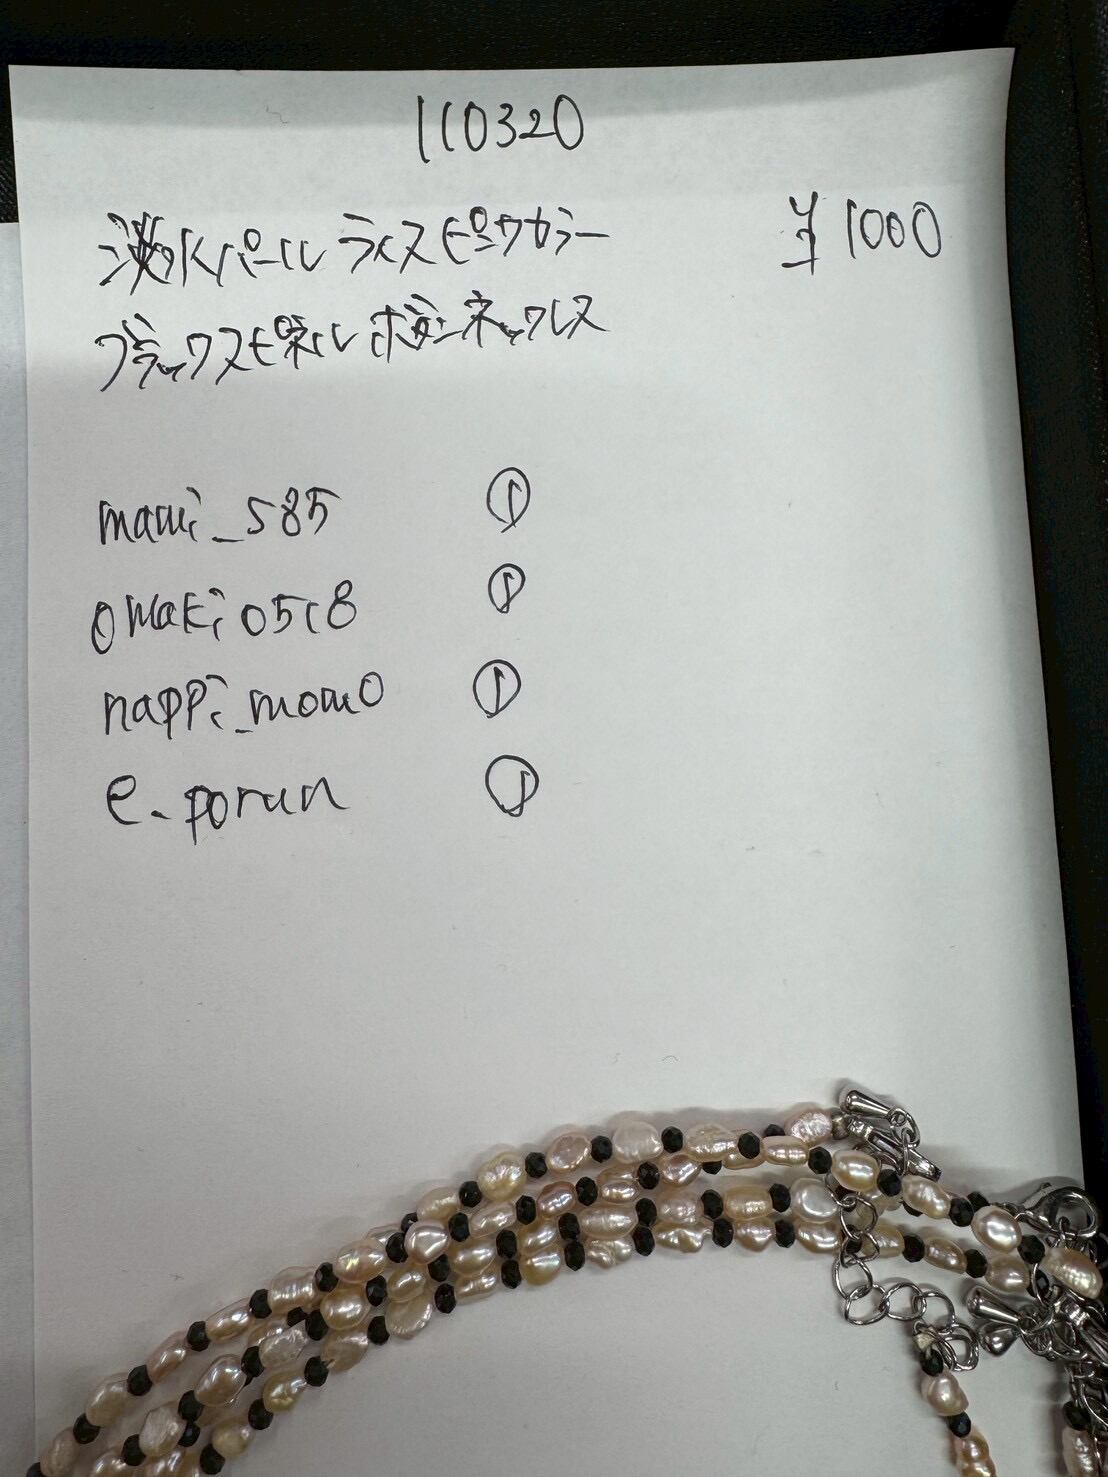 110320
淡水パール ライスピンクカラー ¥1000
ブラックスピネル ネックレス
mami_585 ①
omaki0518 ①
nappi_momo ①
e.porun ①